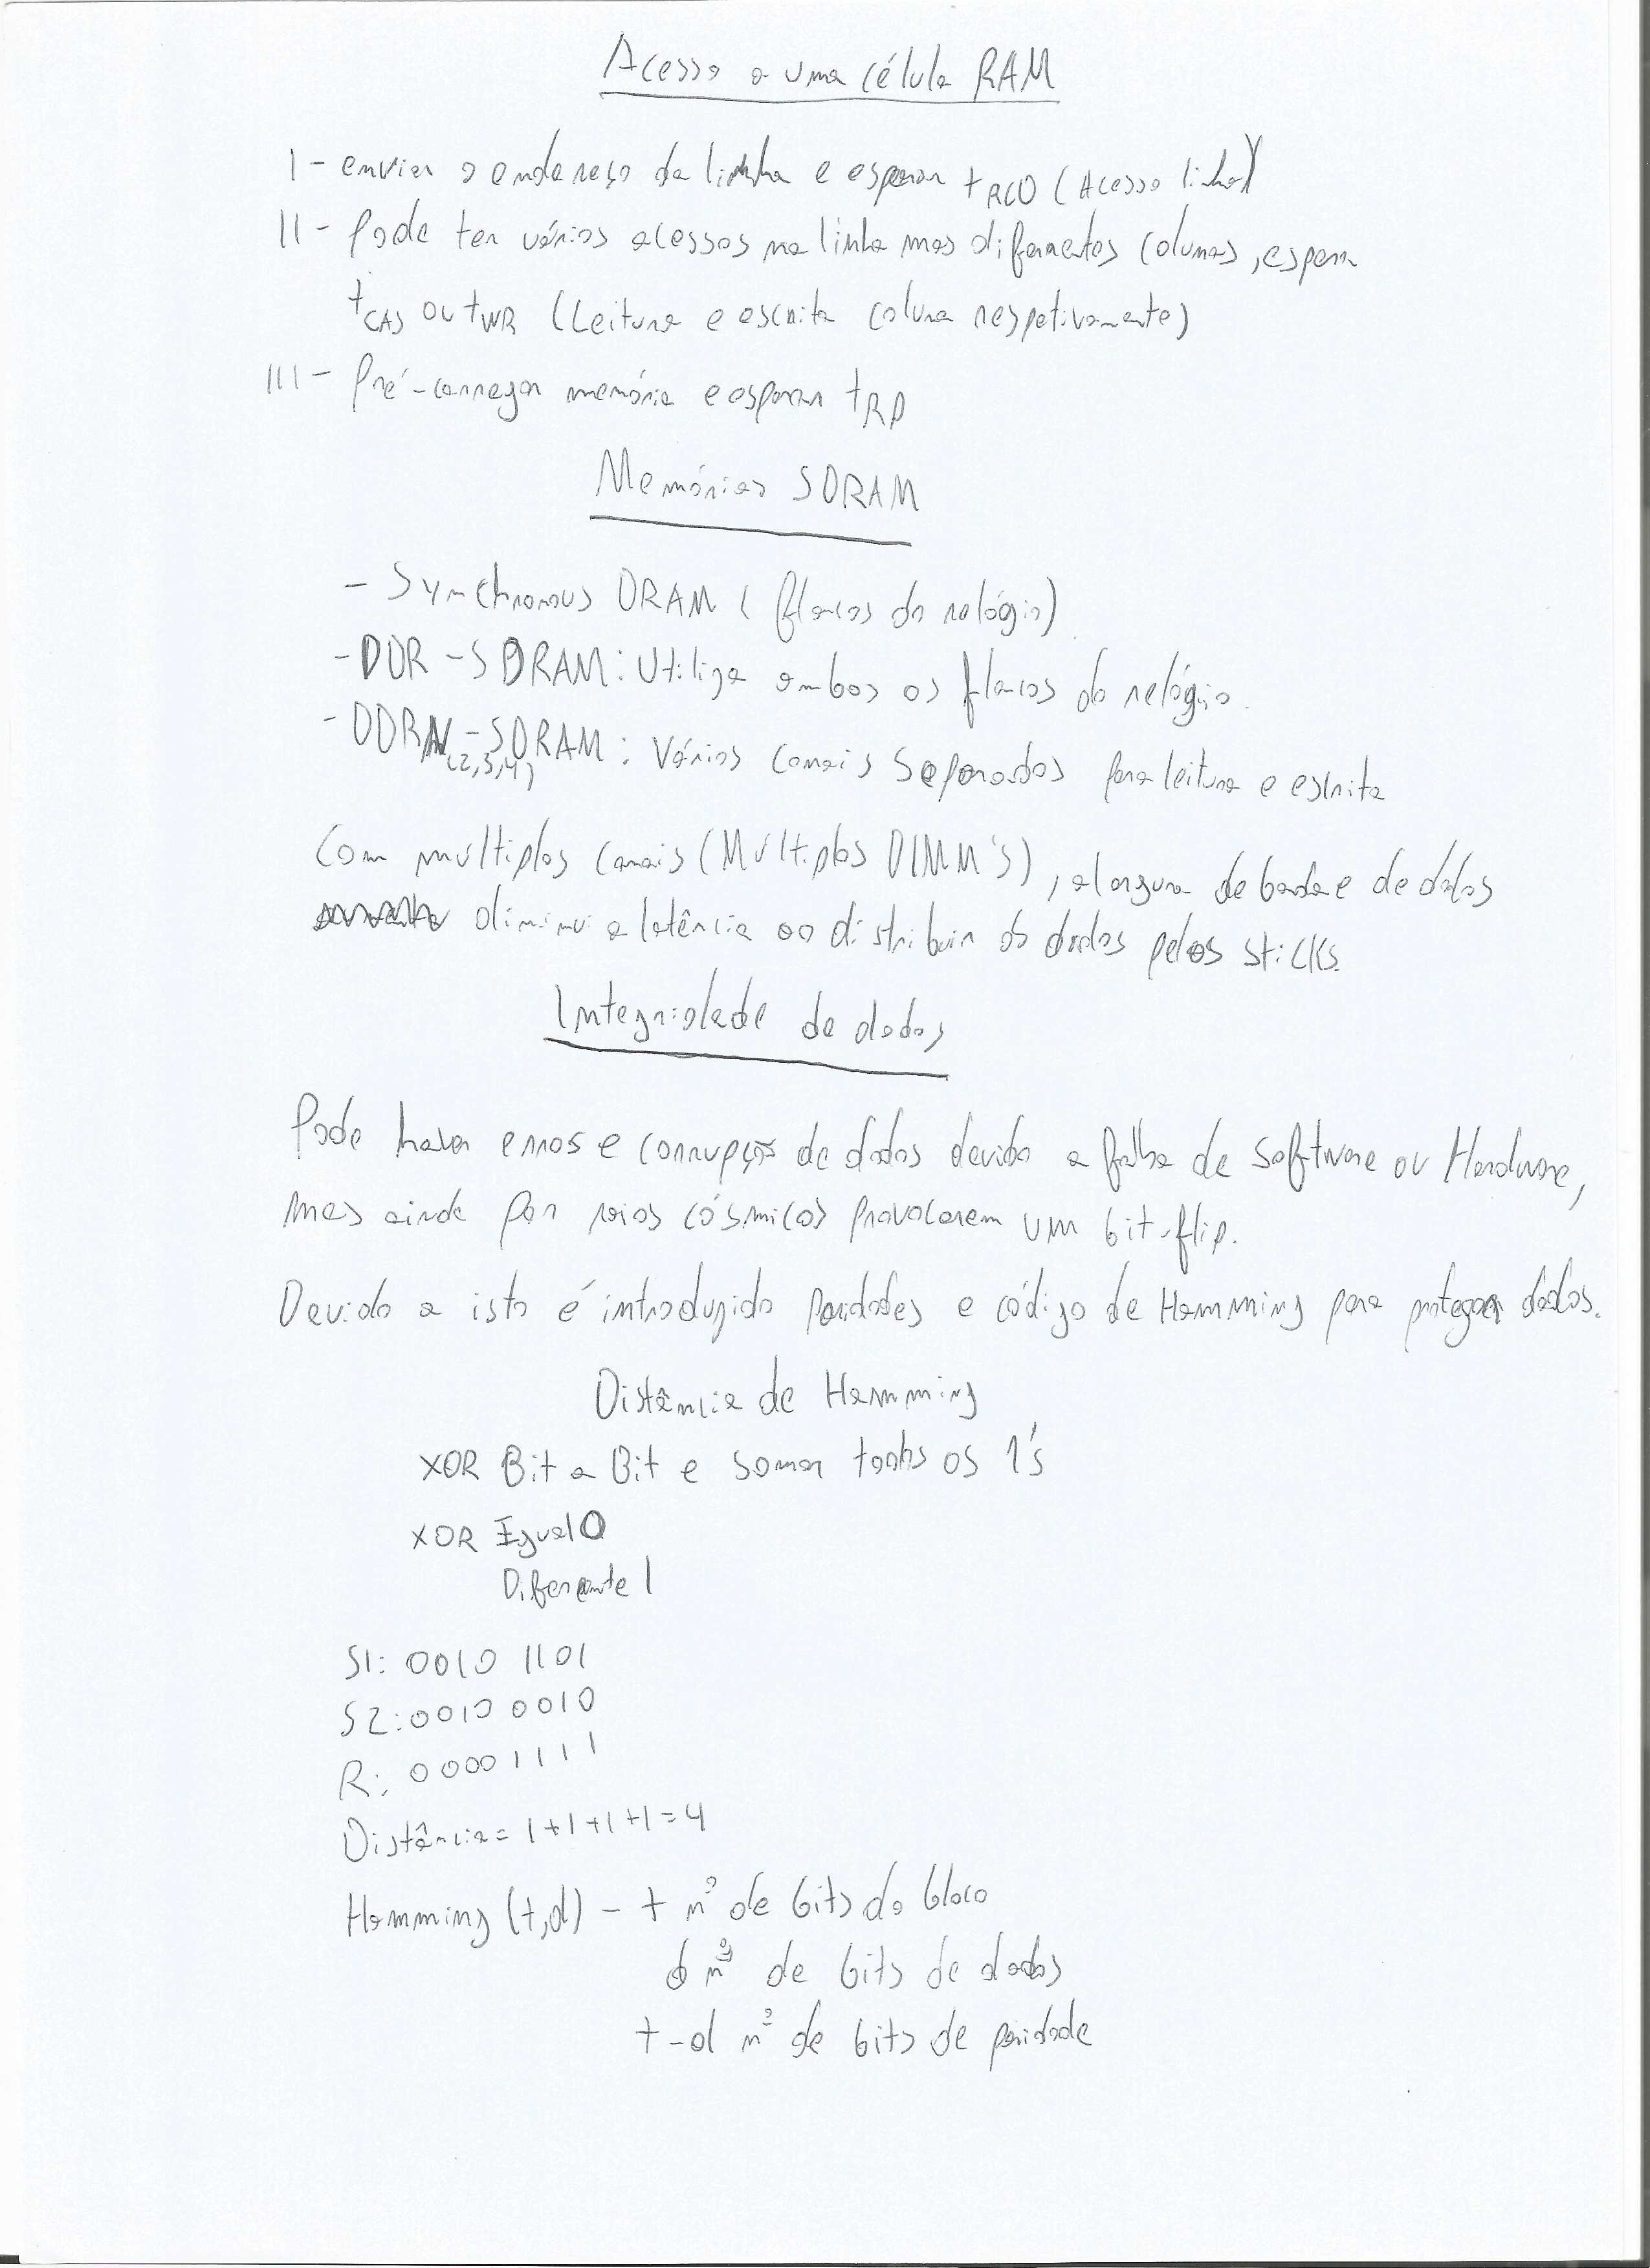 Acesso a uma célula RAM
I - enviar o endereço da linha e esperar tRCD (Acesso linha)
II - Pode ter vários acessos na linha mas diferentes colunas, espera
tCAS ou tWR (Leitura e escrita coluna respetivamente)
III - Pré-carregar memória e esperar tRP
Memórias SDRAM
- Synchronous DRAM (flancos do relógio)
- DDR - SDRAM: Utiliza ambos os flancos do relógio.
- DDRN - SDRAM: Vários canais separados para leitura e escrita
(2,3,4)
Com múltiplos canais (Múltiplos DIMM's), a largura de banda e de dados
diminui a latência ao distribuir os dados pelos sticks.
Integridade de dados
Pode haver erros e corrupção de dados devido a falha de software ou Hardware,
mas ainda por raios cósmicos provocarem um bit-flip.
Devido a isto é introduzido paridades e código de Hamming para proteger dados.
Distância de Hamming
XOR Bit a Bit e somar todos os 1's
XOR Igual 0
Diferente 1
S1: 0010 1101
S2: 0010 0010
R: 0000 1111
Distância = 1+1+1+1=4
Hamming (t,d) - t nº de bits do bloco
d nº de bits de dados
t-d nº de bits de paridade